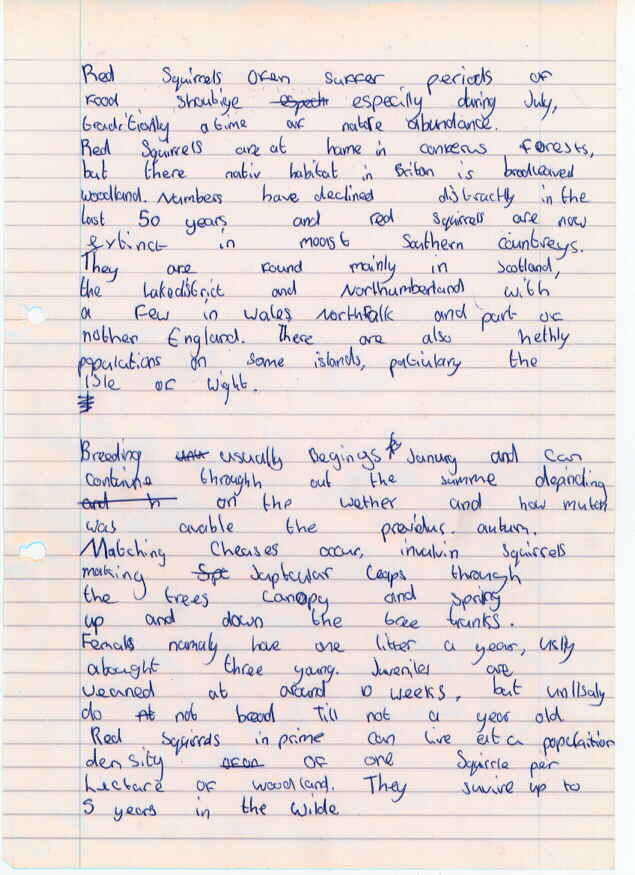 Red Squirrels Ofen suffer periods of
food Shoutige espech especilly during July,
traditionlly a time of natire abundance.
Red Squirrels are at hame in conferus forests,
but there nativ habitat in Briton is broadleaved
woodland. Numbers have declined distractly in the
last 50 years and red squirrels are now
extinct in moost Southern countreys.
They are found mainly in Scotland,
the Lakedistrict and Northumberland with
a few in Wales Northfalk and part of
nother England. There are also hethly
populations on some islands, paticulary the
Isle of Wight.
Breeding usually Begings Janury and can
continue throughh out the summe depinding
and h on the wether and how mutch
was avaible the previous. auturn.
Matching Cheases occur, involvin squirrels
making Spe Saptcular leaps through
the trees canopy and spring
up and down the tree trunks.
Females namaly have one litter a year, uslly
abought three young. Juveniles are
weaned at around 10 weeks, but unllsaly
do not bread till not a year old
Red Squirrds in prime can live at a populaition
density ofon of one Squirrle per
hectare of woodland. They survive up to
5 years in the wilde